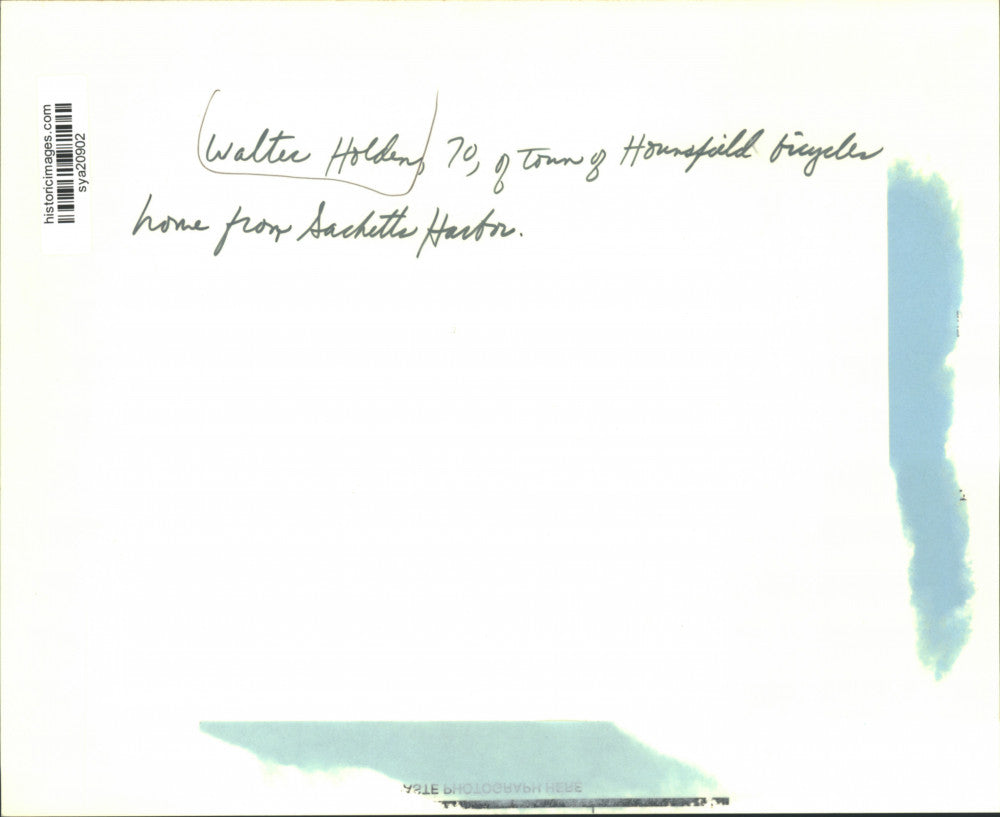 historicimages.com
sya20902
Walter Holden, 70, of town of Hounsfield bicycles
home from Sacketts Harbor.
ASTE PHOTOGRAPH HERE